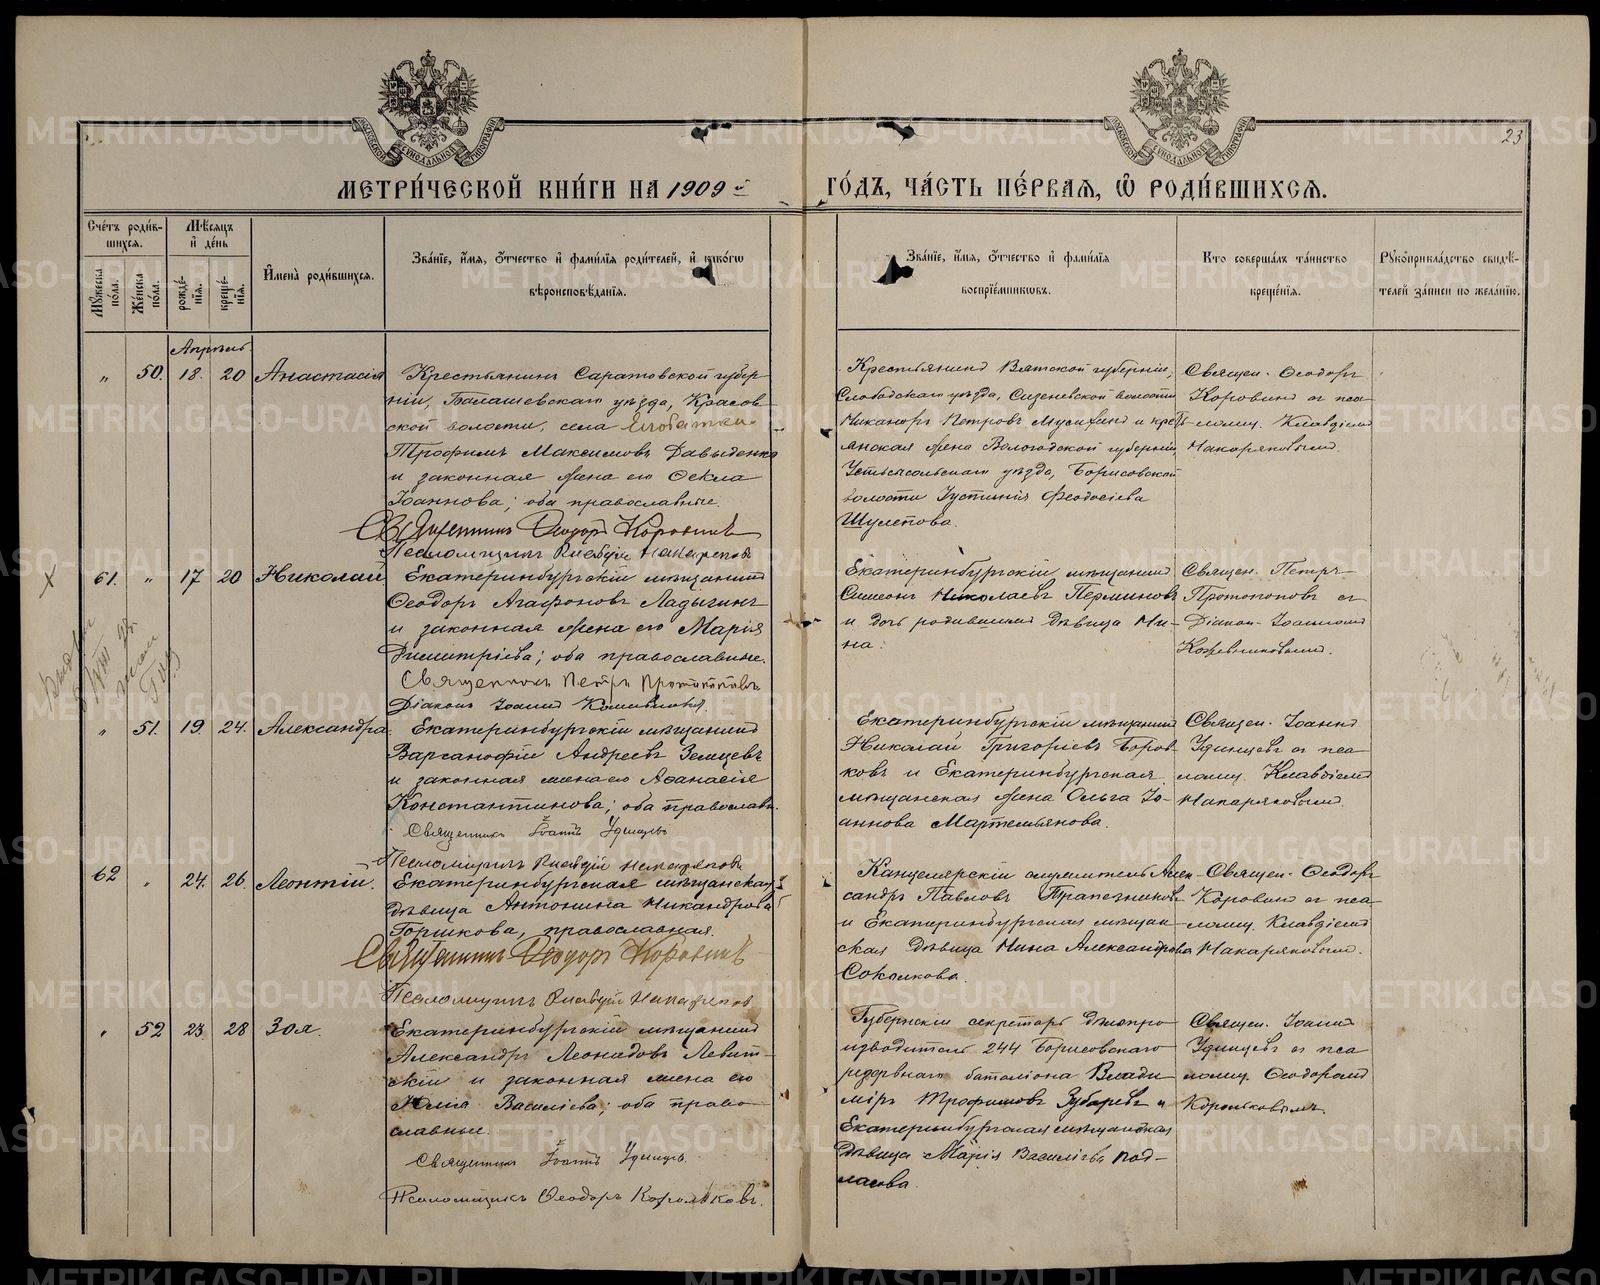 МЕТРИ́ЧЕСКОЙ КНИ́ГИ НА 1909 й ГО́ДЪ, ЧА́СТЬ ПЕ́РВАЯ, Ѿ РОДИ́ВШИХСЯ.
23
МОСКОВСКОЙ СѴНОДАЛЬНОЙ ТИПОГРАФІИ
МОСКОВСКОЙ СѴНОДАЛЬНОЙ ТИПОГРАФІИ
Сче́тъ роди́в-
шихся.
Мꙋ́жеска по́ла.
Же́нска по́ла.
Мѣ́сяцъ
и де́нь
рожде́-
нїя.
креще́-
нїя.
Имена̀ роди́вшихся.
Зва́нїе, и҆́мя, ѻ҆́тчество и҆ фами́лїя роди́телей, и҆ како́гѡ
вѣроисповѣ́данїя.
Зва́нїе, и҆́мя, ѻ҆́тчество и҆ фами́лїя
воспрїе́мникѡвъ.
Кто соверша́лъ та́инство
креще́нїя.
Рꙋкоприкла́дство свидѣ́-
телей за́писи по жела́нїю.
Апрѣль.
„ 50. 18. 20 Анастасія
Крестьянинъ Саратовской губер-
ніи, Балашевскаго уѣзда, Красов-
ской волости, села
Трофимъ Максимовъ Давыденко
и законная жена его Ѳекла
Іоаннова; оба православные.
Священникъ Ѳеодоръ Коровинъ
Псаломщикъ Клавдій Накаряковъ
Крестьянинъ Вятской губерніи,
Слободскаго уѣзда, Сезеневской волости
Никаноръ Петровъ Мусихинъ и кресть-
янская жена Вологодской губерніи
Устьсысольскаго уѣзда, Борисовской
волости Іустинія Ѳеодосіева
Шулепова.
Священ. Ѳеодоръ
Коровинъ съ пса-
ломщ. Клавдіемъ
Накаряковымъ.
61. „ 17 20 Николай
Екатеринбургскій мѣщанинъ
Ѳеодоръ Агафоновъ Ладыгинъ
и законная жена его Марія
Димитріева; оба православные.
Священникъ Петръ Протопоповъ
Діаконъ Іоаннъ Кожевниковъ
Екатеринбургскій мѣщанинъ
Симеонъ Николаевъ Перминовъ
и дочь родившей дѣвица Ни-
на.
Священ. Петръ
Протопоповъ съ
Діакон. Іоанномъ
Кожевниковымъ.
„ 51. 19. 24. Александра.
Екатеринбургскій мѣщанинъ
Варсанофій Андреевъ Земцевъ
и законная жена его Аѳанасія
Константинова; оба православн.
Священникъ Іоаннъ Удинцевъ
Псаломщикъ Клавдій Накаряковъ
Екатеринбургскій мѣщанинъ
Николай Григоріевъ Боров-
ковъ и Екатеринбургская
мѣщанская жена Ольга Іо-
аннова Мартемьянова.
Священ. Іоаннъ
Удинцевъ съ пса-
ломщ. Клавдіемъ
Накаряковымъ.
62 „ 24. 26. Леонтій.
Екатеринбургская мѣщанская
дѣвица Антонина Никандрова
Горшкова, православная.
Священникъ Ѳеодоръ Коровинъ
Псаломщикъ Клавдій Накаряковъ
Канцелярскій служитель Алек-
сандръ Павловъ Трапезниковъ
и Екатеринбургская мѣщан-
ская дѣвица Нина Александрова
Соколкова.
Священ. Ѳеодоръ
Коровинъ съ пса-
ломщ. Клавдіемъ
Накаряковымъ.
„ 52. 23 28 Зоя.
Екатеринбургскій мѣщанинъ
Александръ Леонидовъ Левит-
скій и законная жена его
Юлія Василіева; оба право-
славные.
Священникъ Іоаннъ Удинцевъ.
Псаломщикъ Ѳеодоръ Корольковъ.
Губернскій секретарь дѣлопро-
изводитель 244 Борисовскаго
резервнаго баталіона Влади-
міръ Трофимовъ Зубаревъ и
Екатеринбургская мѣщанская
дѣвица Марія Василіева Под-
ласова.
Священ. Іоаннъ
Удинцевъ съ пса-
ломщ. Ѳеодоромъ
Корольковымъ.
METRIKI.GASO-URAL.RU